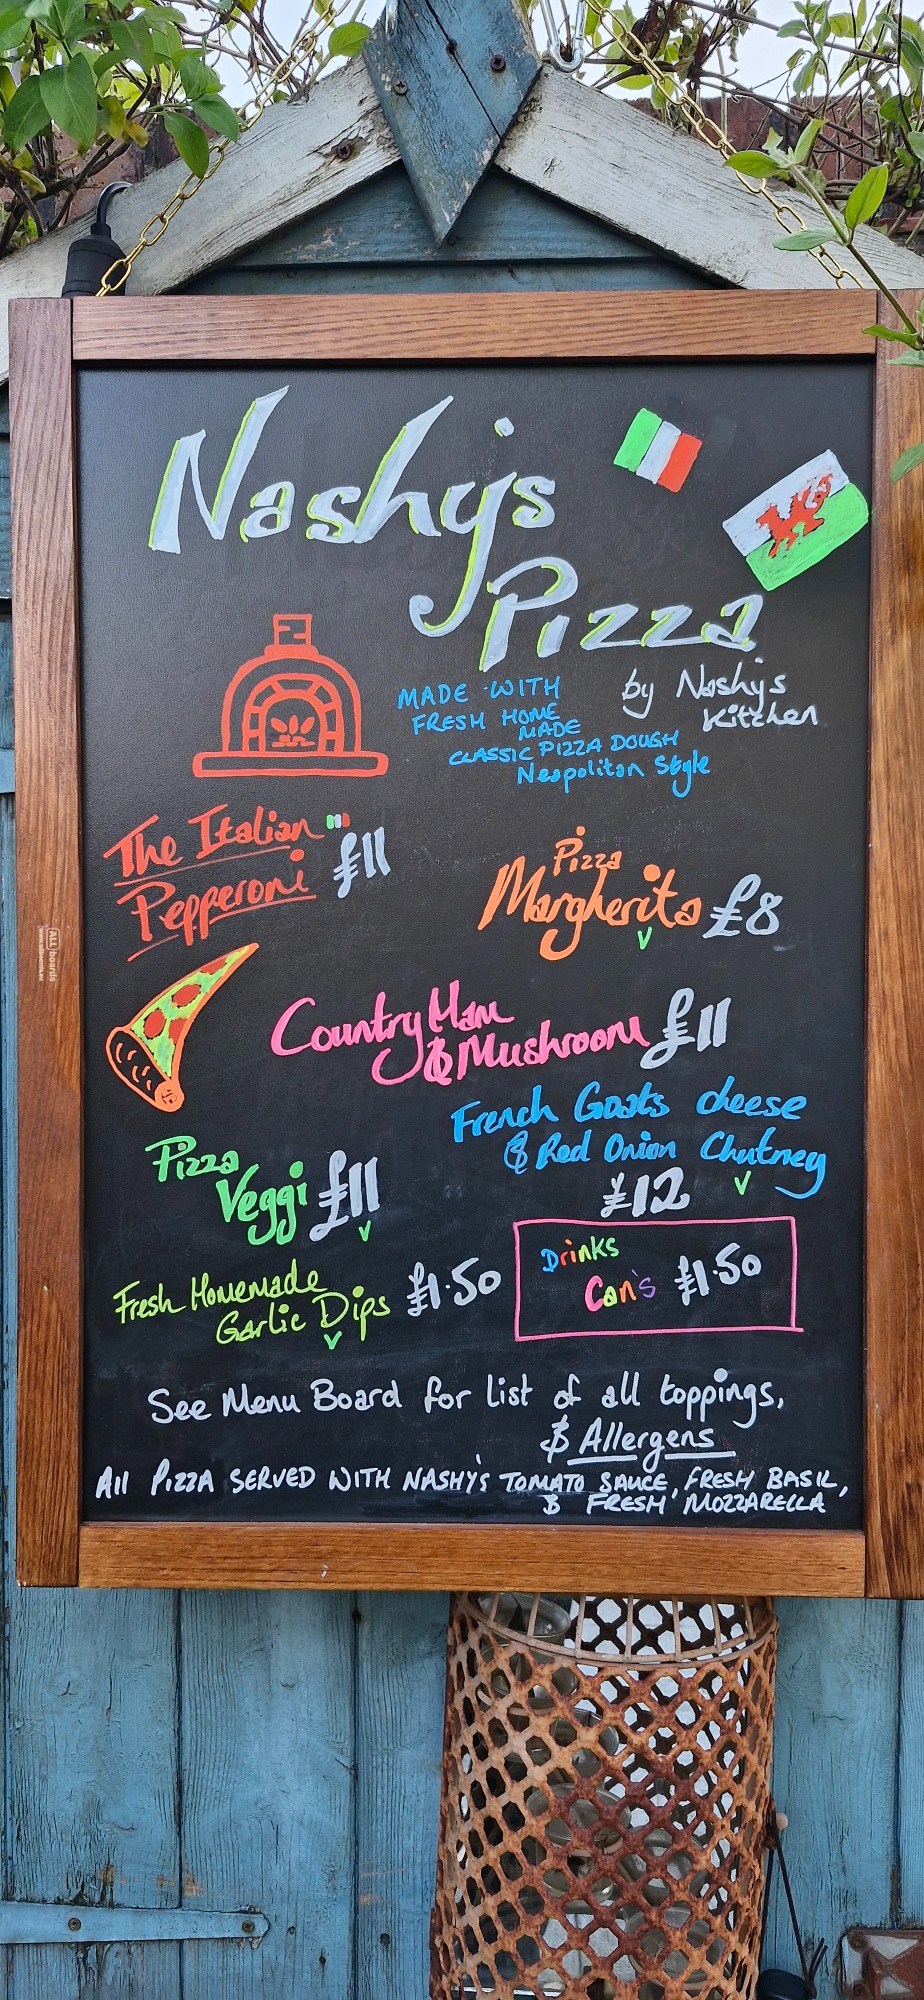 Nashy's
Pizza
by Nashy's
Kitchen
MADE WITH
FRESH HOME
MADE
CLASSIC PIZZA DOUGH
Neapolitan Style
The Italian
Pepperoni £11
Pizza
Margherita £8
V
Country Ham
& Mushroom £11
French Goats cheese
& Red Onion Chutney
V
£12
Pizza
Veggi £11
V
Drinks
Can's £1.50
Fresh Homemade
Garlic Dips £1.50
V
See Menu Board for list of all toppings,
& Allergens
All PIZZA SERVED WITH NASHY'S TOMATO SAUCE, FRESH BASIL,
& FRESH MOZZARELLA
ALL boards